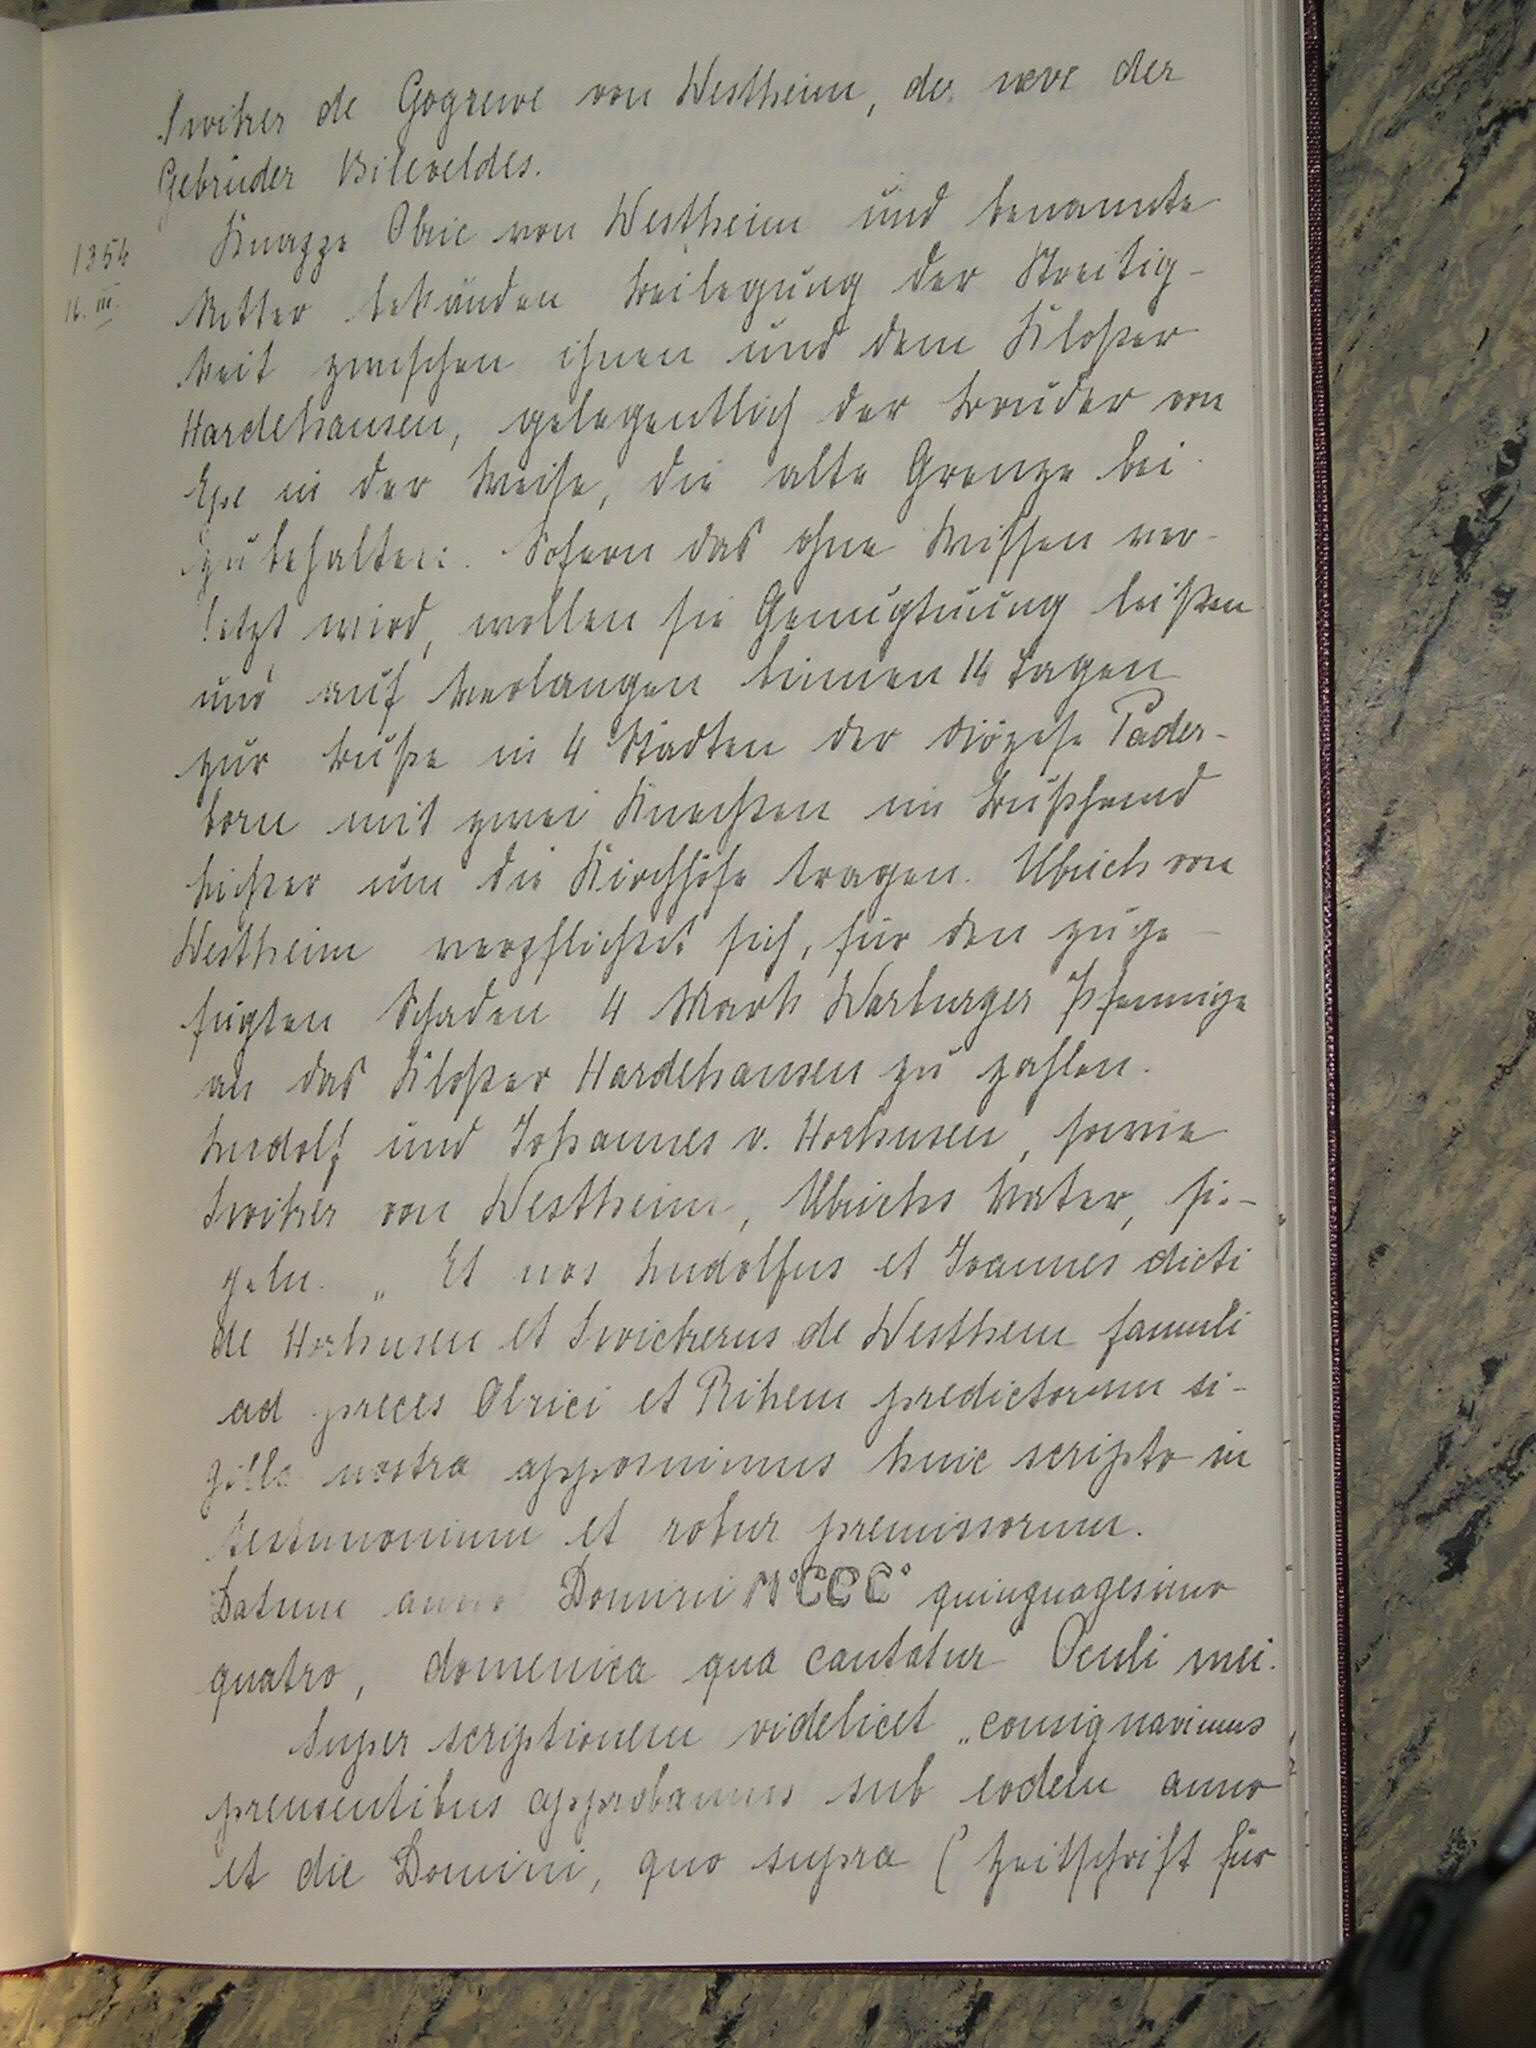 Swiker de Gogrewe von Westheim, der neve der
Gebrüder Bileveldes.
1354
16. III.
Knappe Olric von Westheim und benannte
Ritter bekunden Beilegung der Streitig-
keit zwischen ihnen und dem Kloster
Hardehausen, gelegentlich der Brüder von
Epe in der Weise, die alte Grenze bei
zubehalten. Sofern das ohne Wissen ver-
letzt wird, wollen sie Genugtuung leisten
und auf Verlangen binnen 14 Tagen
zur Buße in 4 Städten der Diözese Pader-
born mit zwei Knechten im Bußhemd
Lichter um die Kirchhöfe tragen. Ulrich von
Westheim verpflichtet sich, für den zuge-
fügten Schaden 4 Mark Warburger Pfennige
an das Kloster Hardehausen zu zahlen.
Ludolf und Johannes v. Horhusen, sowie
Swiker von Westheim, Ulrichs Vater, sie-
geln. „Et nos Ludolfus et Joannes dicti
de Horhusen et Swickerus de Westhem famuli
ad preces Olrici et predictorum si-
gilla nostra apposuimus huic scripto in
testimonium et robur premissorum.
Datum anno Domini M°CCC° quinquagesimo
quatro, domenica qua cantatur Oculi mei.
Super scriptionem videlicet „consignavimus
prensentibus approbamus sub eodem anno
et die Domini, quo supra (Zeitschrift für